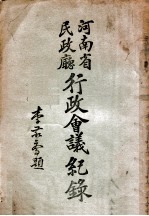 河南省
民政廳
行政會議紀錄
李宗魯題